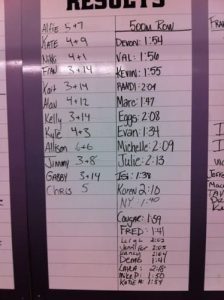 RESULTS
Alfie 5+7
KATE 4+9
Nikki 4+1
FRAN 3+14
Kait 3+14
Alan 4+12
Kelly 3+14
Kyle 4+3
Allison 6+6
Jimmy 3+8
GABBY 3+14
CHRIS 5
500m Row
DEVON: 1:54
VAL: 1:56
KEVIN: 1:55
RANDI: 2:04
Marc: 1:47
Eggs: 2:08
Evan: 1:34
Michelle: 2:09
Julie: 2:13
Jen: 1:38
Karen 2:10
NY 1:40
Cougar: 1:59
FRED: 1:41
Leigh 2:02
Jennifer 2:03
2:04
Demo 1:41
LAURA 2:18
1:50
KATIE A 1:59